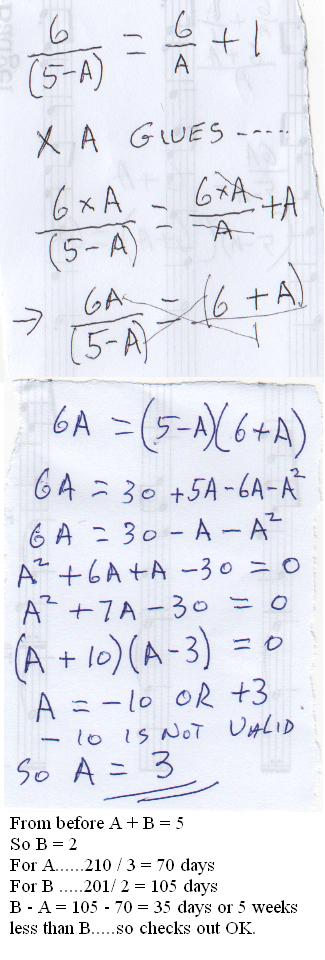 6/(5-A) = 6/A + 1
X A GIVES -----
6xA/(5-A) = 6xA/A + A
→ 6A/(5-A) = (6 + A)/1
6A = (5-A)(6+A)
6A = 30 +5A-6A-A²
6A = 30 - A - A²
A² +6A+A -30 = 0
A² +7A -30 = 0
(A + 10)(A-3) = 0
A = -10 OR +3
-10 IS NOT VALID
So A = 3
From before A + B = 5
So B = 2
For A......210 / 3 = 70 days
For B .....201/ 2 = 105 days
B - A = 105 - 70 = 35 days or 5 weeks
less than B.....so checks out OK.